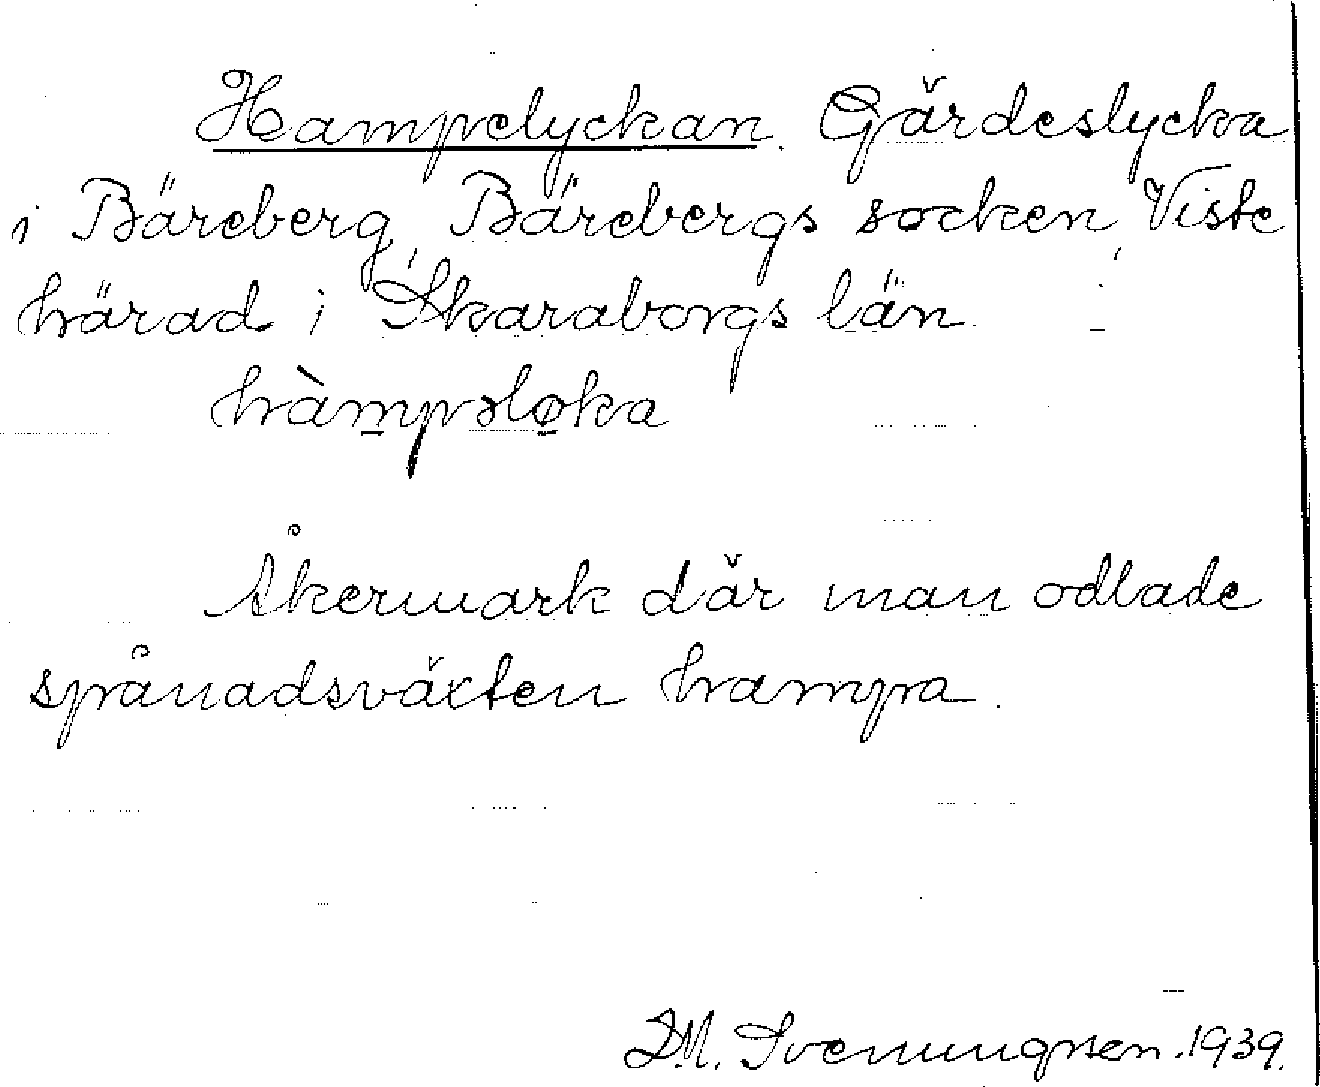 Hampelyckan. Gärdeslycka
i Bäreberg, Bärebergs socken, Viste
härad i Skaraborgs län
hàmpəløka
Åkermark där man odlade
spånadsväxten hampa.
D.M. Svenungsen. 1939.